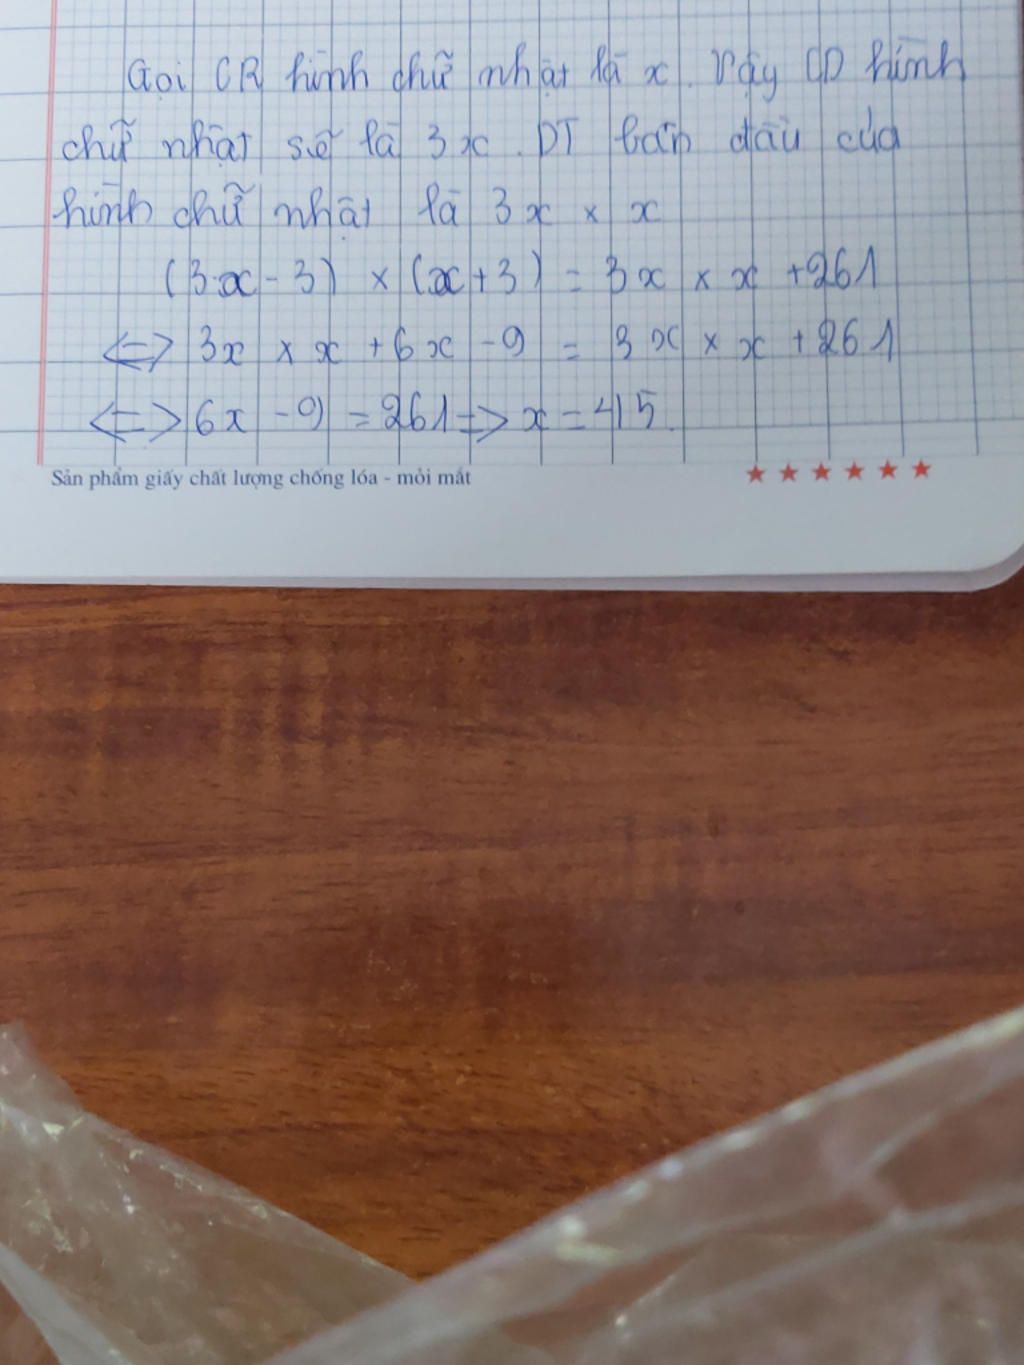 Gọi CR hình chữ nhật là x. Vậy CD hình
chữ nhật sẽ là 3x. DT ban đầu của
hình chữ nhật là 3x × x
(3x - 3) × (x + 3) = 3x × x + 261
<=> 3x × x + 6x - 9 = 3x × x + 261
<=> 6x - 9 = 261 => x = 45.
Sản phẩm giấy chất lượng chống lóa - mỏi mắt